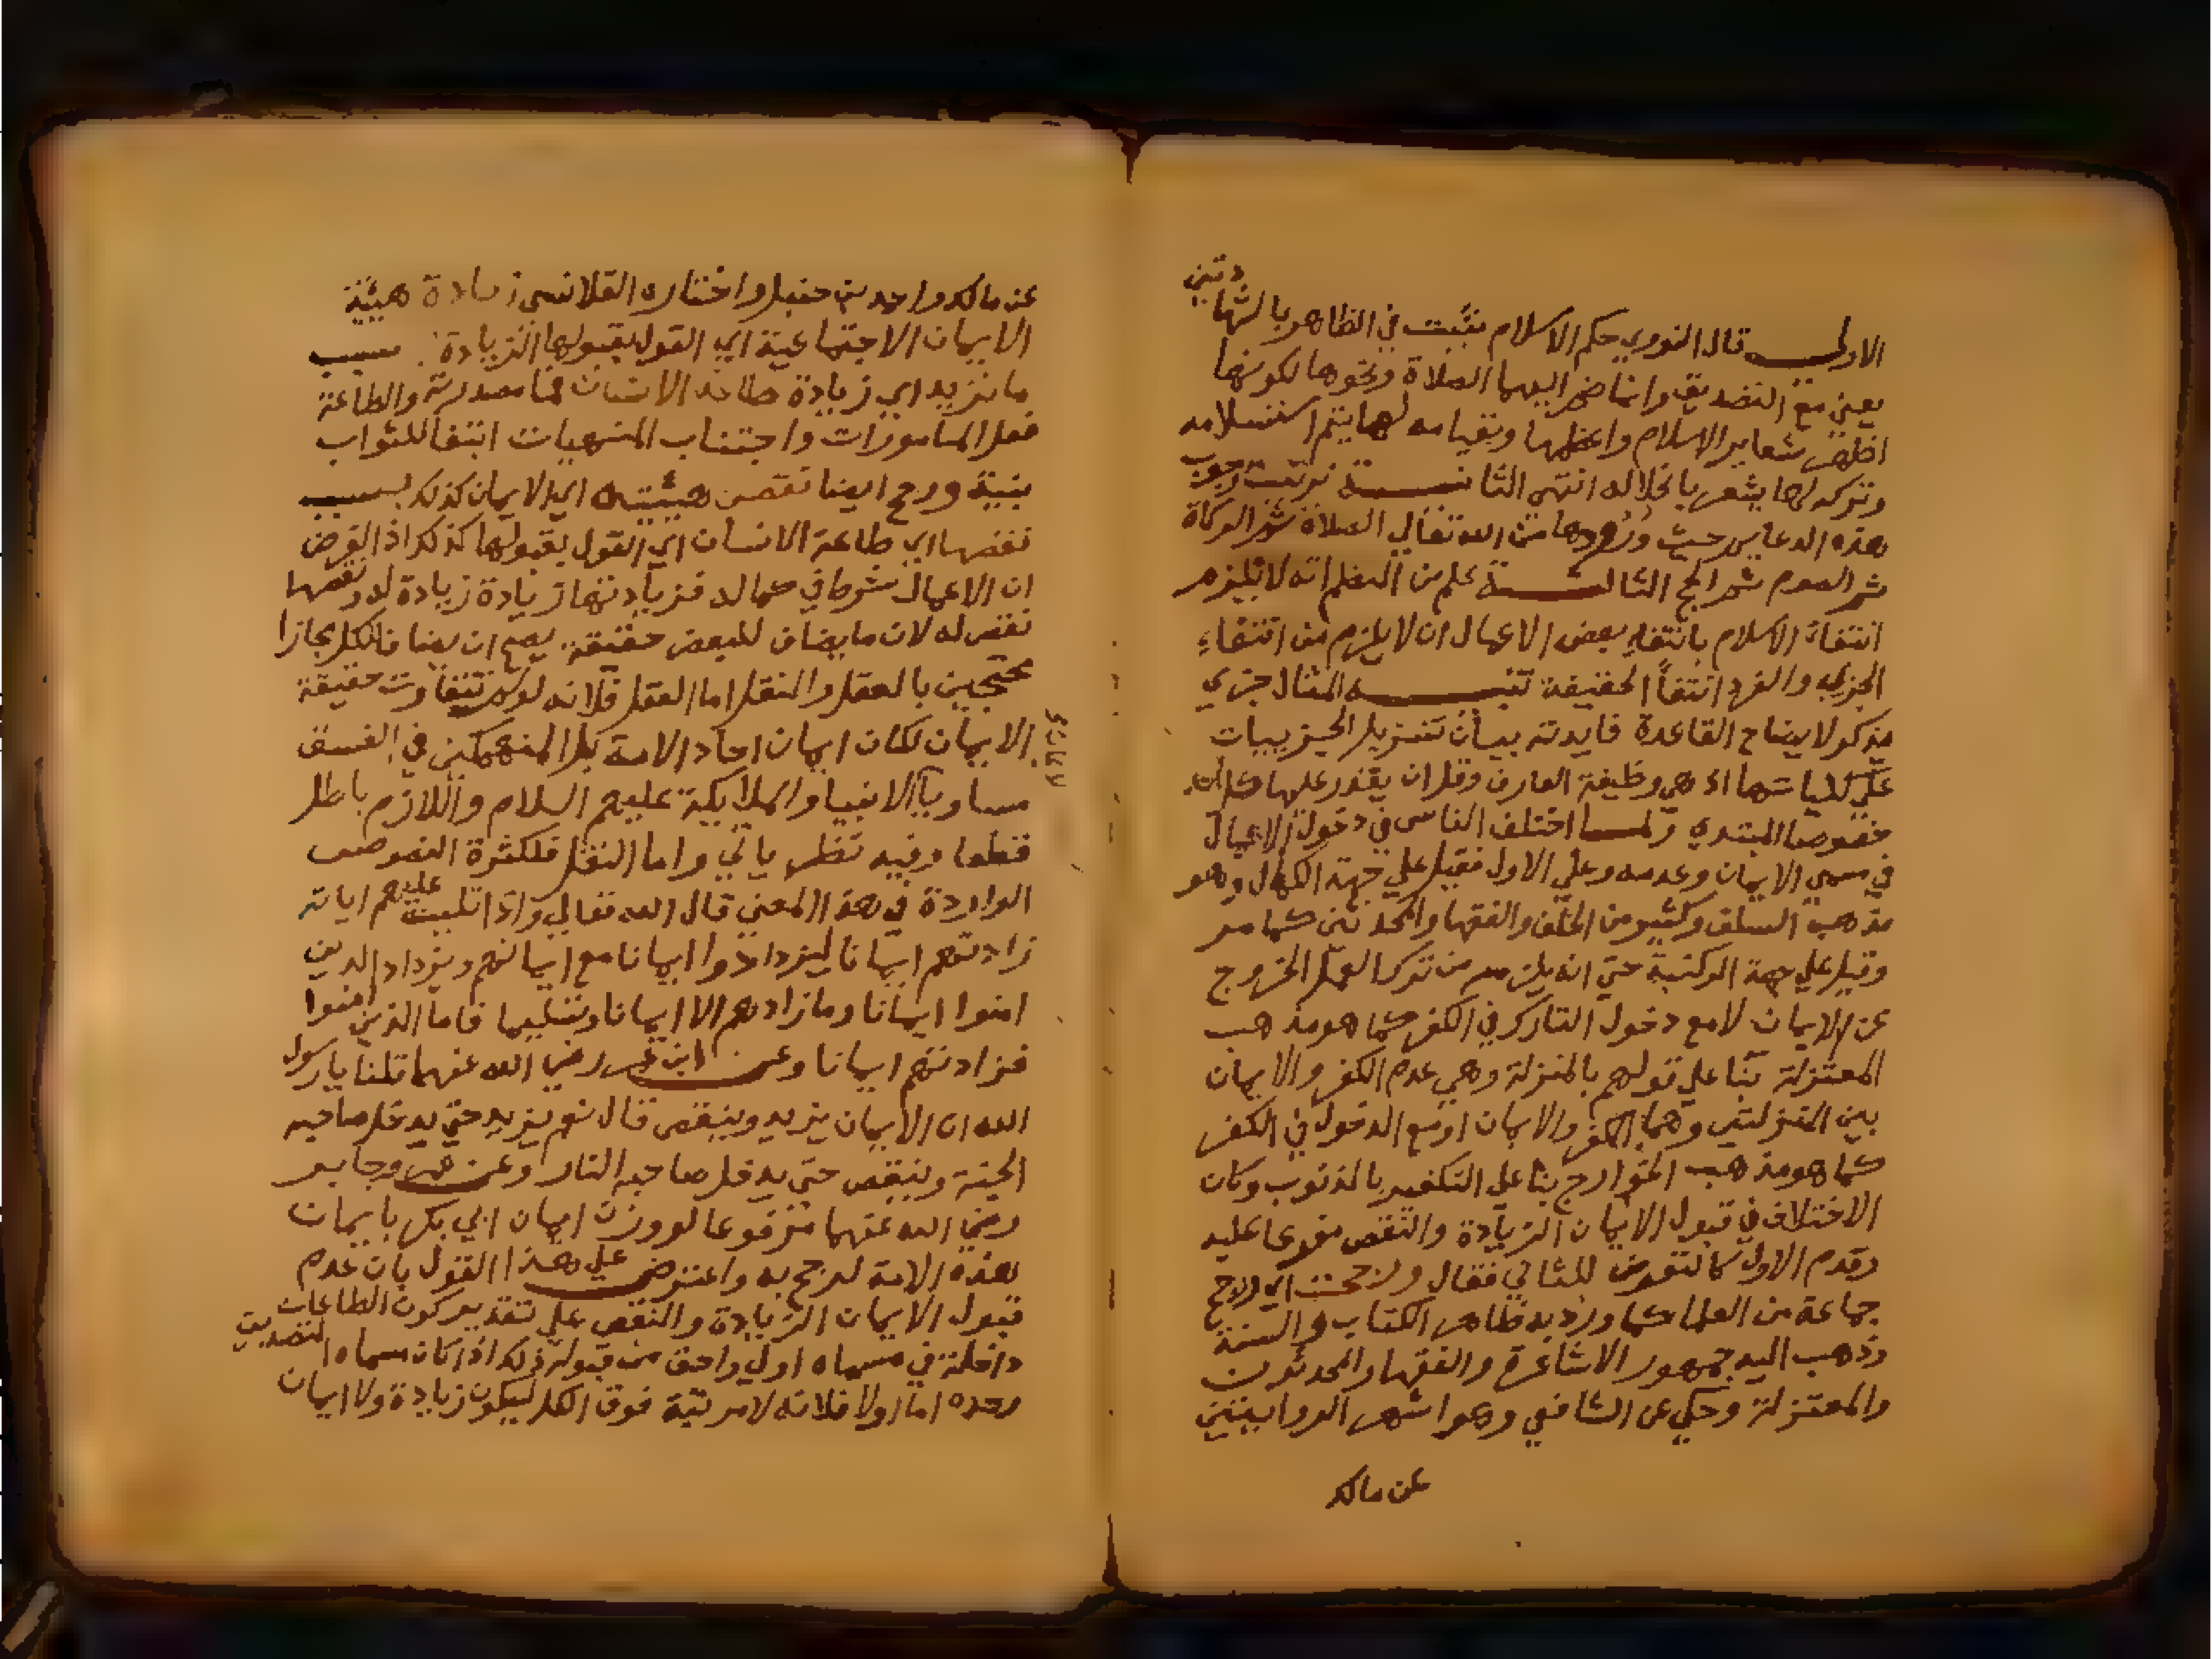 الاولى قال النووي حكم الاسلام يثبت في الظاهر بالشهادتين
يعني مع التصديق وانما ضم اليهما الصلاة ونحوها لكونها
اظهر شعاير الاسلام واعظمها وبقيامه لها يتم استسلامه
وتركه لها يشعر بانحلاله انتهى الثانية ترتيب وجوب
هذه الدعايم حيث ورودها من الله تعالي الصلاة ثم الزكاة
ثم الصوم ثم الحج الثالثة علم من النظم انه لا يلزم
انتفاء الاسلام بانتفاء بعض الاعمال اذ لا يلزم من انتفاء
الجزي والفرد انتفا الحقيقة تنبيه المثال جزي
يذكر لايضاح القاعدة فايدته بيان تنزيل الجزييات
علي كلياتها اذ هي وظيفة العارف وقل ان يقدر عليها كل احد
خصوصا المبتدي ولما اختلف الناس في دخول الاعمال
في مسمي الايمان وعدمه وعلي الاول فقيل علي جهة الكمال وهو
مذهب السلف وكثير من الخلف والفقها والمحدثين كما مر
وقيل علي جهة الركنية حتي انه يلزم من ترك العمل الخروج
عن الايمان لا مع دخول التارك في الكفر كما هو مذهب
المعتزلة بنا علي قولهم بالمنزلة وهي عدم الكفر والايمان
بين المنزلتين وهما الكفر والايمان او مع الدخول في الكفر
كما هو مذهب الخوارج بنا علي التكفير بالذنوب وكان
الاختلاف في قبول الايمان الزيادة والنقص مفرعا عليه
وقدم الاول كالتعريض للثاني فقال ورجحت اي رجح
جماعة من العلما كما ورد به ظاهر الكتاب والسنة
وذهب اليه جمهور الاشاعرة والفقها والمحدثون
والمعتزلة وحكي عن الشافعي وهو اشهر الروايتين
عن مالك
عن مالك واحمد بن حنبل واختاره القلانسي زيادة هيئة
الايمان الاجتماعية اي القول بقبولها الزيادة بسبب
ما تزيد اي زيادة طاعة الانسان فما مصدرية والطاعة
فعل المامورات واجتناب المنهيات ابتغا للثواب
بنية ورجح ايضا نقص هيئته اي الايمان كذلك بسبب
نقصها اي طاعة الانسان اي القول بقبولها كذلك اذ الفرض
ان الاعمال شرط في كماله فزيادتها زيادة زيادة له ونقصها
نقص له لان ما يضاف للبعض حقيقة يصح ان يضاف للكل مجازا
محتجين بالعقل والنقل اما العقل فلانه لو لم تتفاوت حقيقة
الايمان لكان ايمان احاد الامة بل المنهمكين في الفسق
مساويا لايمان الانبيا والملايكة عليهم السلام واللازم باطل
قطعا وفيه نظر ياتي واما النقل فلكثرة النصوص
الواردة في هذا المعني قال الله تعالي واذا تليت عليهم اياته
زادتهم ايمانا ليزدادوا ايمانا مع ايمانهم ويزداد الذين
امنوا ايمانا وما زادهم الا ايمانا وتسليما فاما الذين امنوا
فزادتهم ايمانا وعن ابن عمر رضي الله عنهما قلنا يا رسول
الله ان الايمان يزيد وينقص قال نعم يزيد حتي يدخل صاحبه
الجنة وينقص حتي يدخل صاحبه النار وعن عمر وجابر
رضي الله عنهما مرفوعا لو وزن ايمان ابي بكر بايمان
هذه الامة لرجح به واعترض علي هذا القول بان عدم
قبول الايمان الزيادة والنقص علي تقدير كون الطاعات
داخلة في مسماه اولي واحق من قبوله ذلك اذا كان مسماه التصديق
وحده اما اولا فلانه لا مرتبة فوق الكل ليكون زيادة ولا ايمان